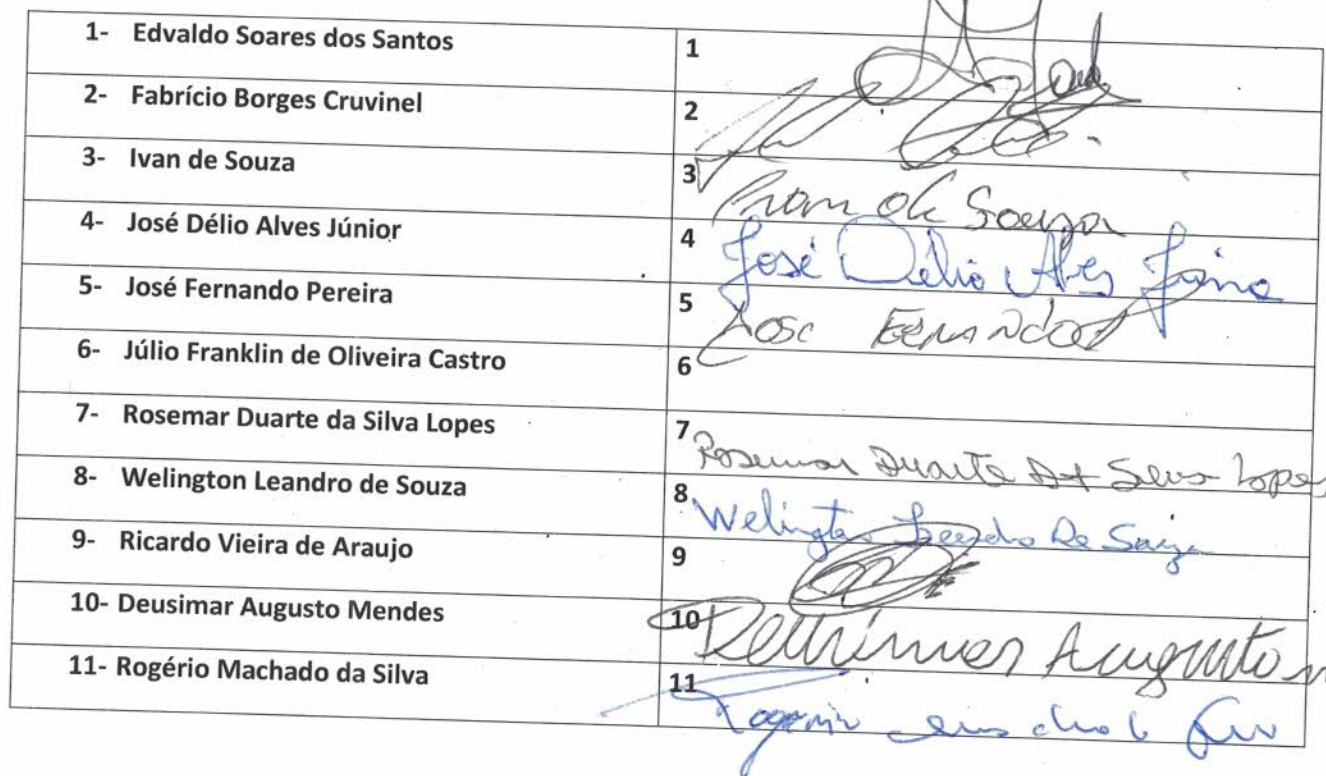 1- Edvaldo Soares dos Santos 1
2- Fabrício Borges Cruvinel 2
3- Ivan de Souza 3 Ivan de Souza
4- José Délio Alves Júnior 4 José Délio Alves Júnior
5- José Fernando Pereira 5 José FERNANDO
6- Júlio Franklin de Oliveira Castro 6
7- Rosemar Duarte da Silva Lopes 7 Rosemar Duarte DA Silva Lopes
8- Welington Leandro de Souza 8 Welington Leandro De Souza
9- Ricardo Vieira de Araujo 9
10- Deusimar Augusto Mendes 10 Deusimar Augusto
11- Rogério Machado da Silva 11